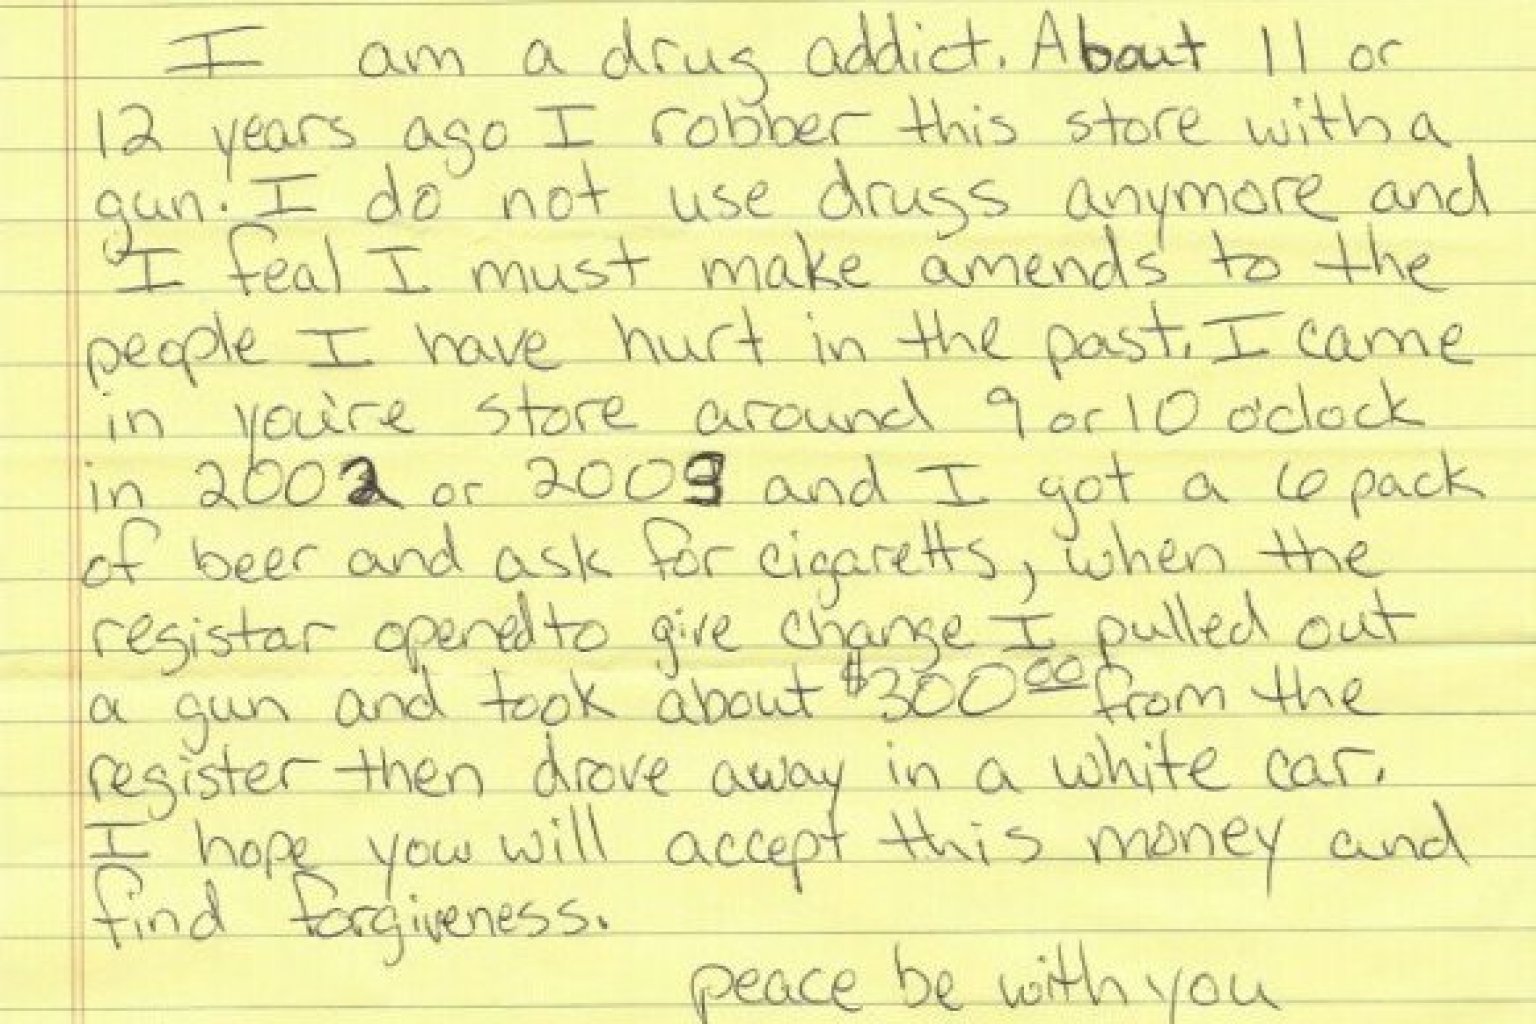 I am a drug addict. About 11 or
12 years ago I robber this store with a
gun. I do not use drugs anymore and
I feal I must make amends to the
people I have hurt in the past. I came
in you're store around 9 or 10 o'clock
in 2002 or 2003 and I got a 6 pack
of beer and ask for cigaretts, when the
registar opened to give change I pulled out
a gun and took about $300.00 from the
register then drove away in a white car.
I hope you will accept this money and
find forgiveness.
peace be with you